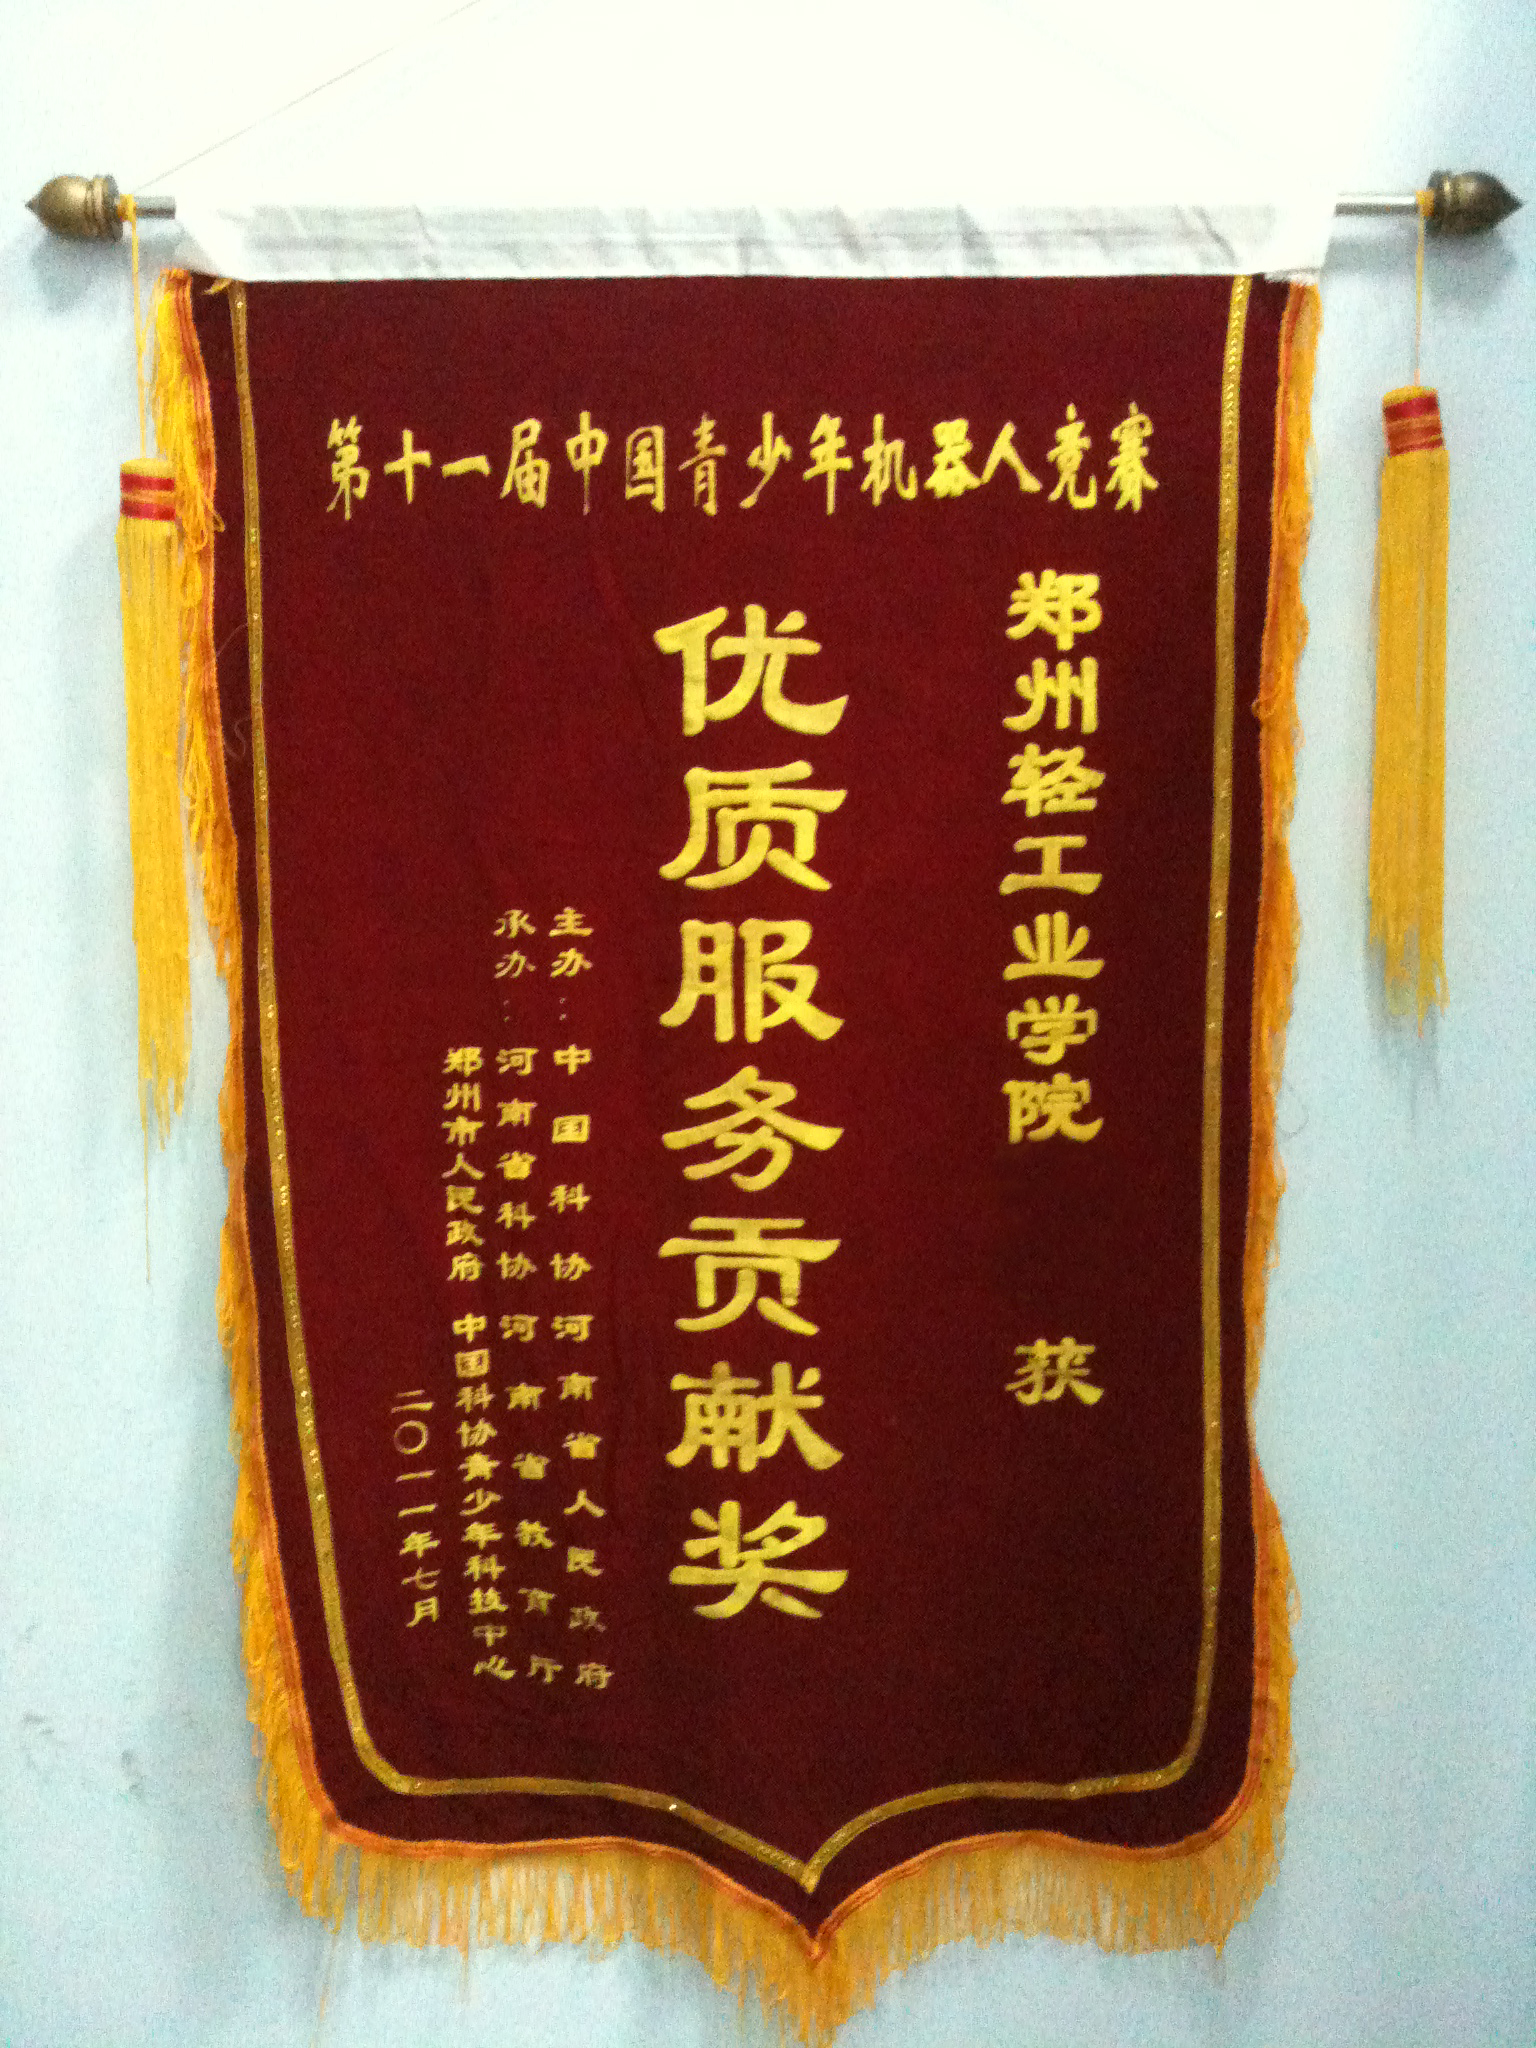 第十一届中国青少年机器人竞赛
郑州轻工业学院 获
优质服务贡献奖
主办：中国科协 河南省人民政府
承办：河南省科协 河南省教育厅
郑州市人民政府 中国科协青少年科技中心
二〇一一年七月